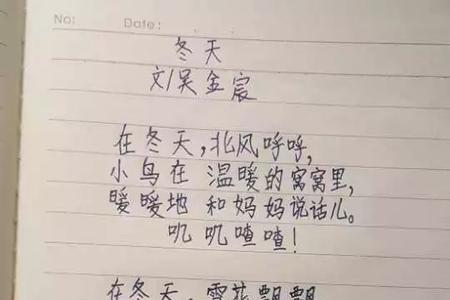 No: Date:
冬天
文/吴金宸
在冬天,北风呼呼,
小鸟在温暖的窝窝里,
暖暖地和妈妈说话儿。
叽叽喳喳!
在冬天,雪花飘飘